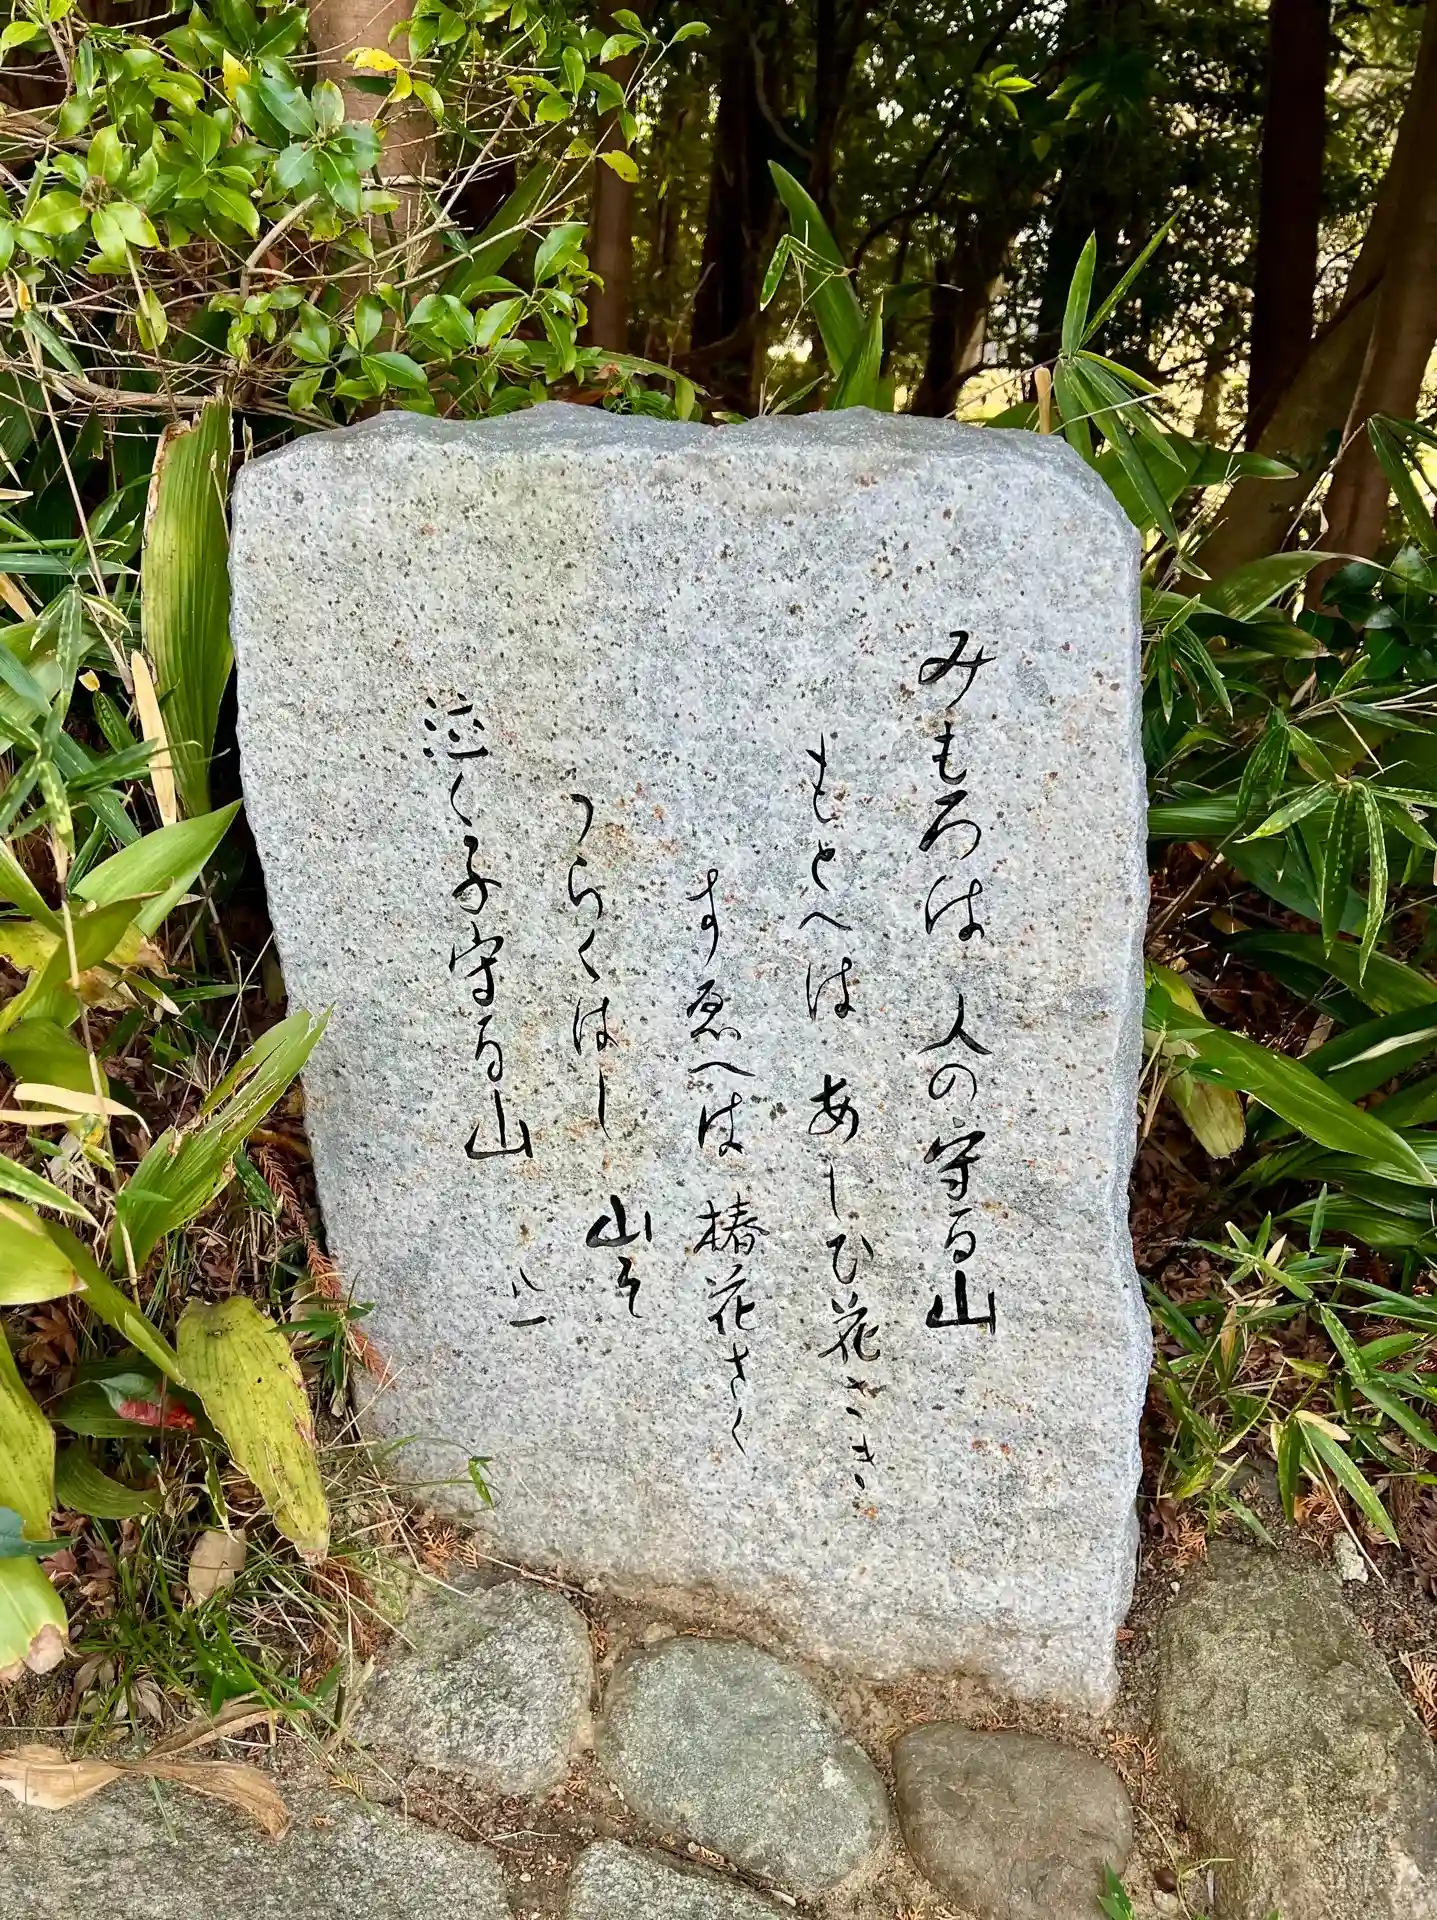 みもろは 人の守る山
もとへは あしひ花さき
すゑへは 椿花さく
うらくはし 山そ
泣く子守る山